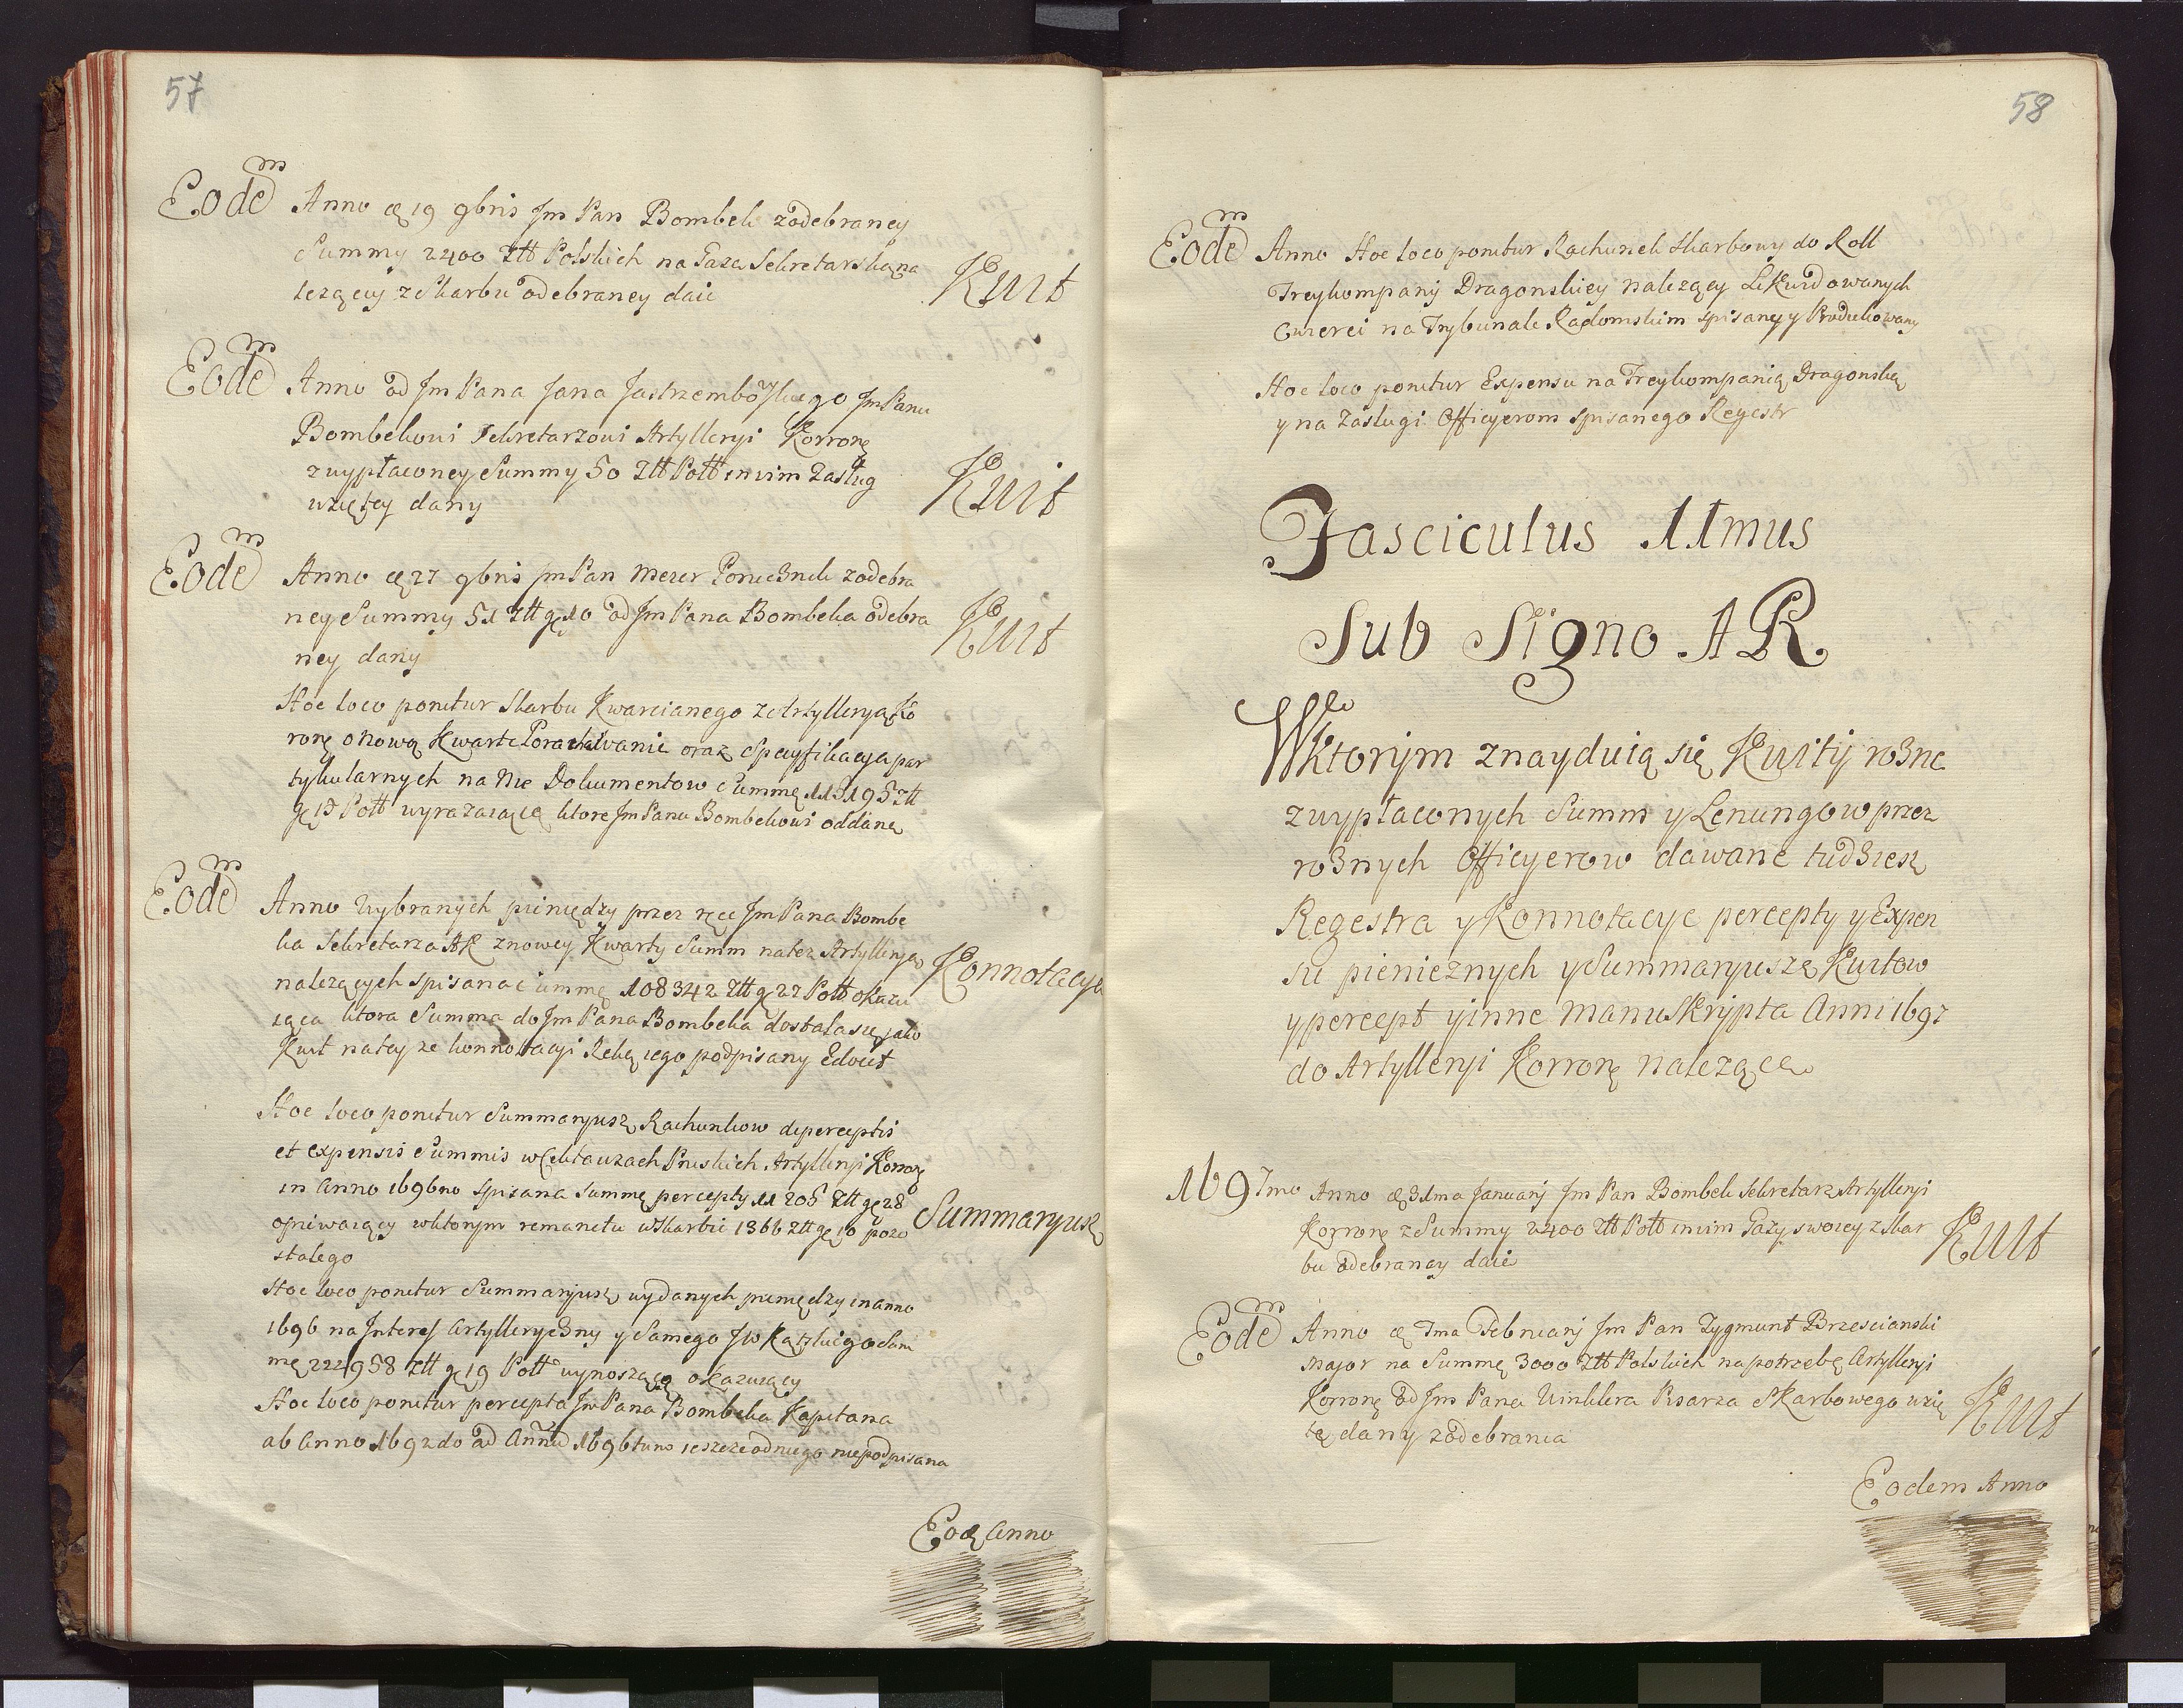 57
Eodem Anno d 19 9bris Jm Pan Bombek zodebraney
Summy 2400 Ztt Polskich na Gaza Sekretarską na
lezącey z Skarbu odebraney daie Kwit
Eodem Anno od Jm Pana Jana Jastrzembowskiego Jm Panu
Bombekowi Sekretarzowi Artylleryi Korronę
z wypłaconey Summy 50 Ztt Poltt in vim Zasług
wziętey dany Kwit
Eodem Anno d 27 9bris Jm Pan Mezer Porucznik zodebra
ney Summy 51 Ztt g 10 od Jm Pana Bombeka odebra
ney dany Kwit
Hoc loco ponitur Skarbu Kwarcianego z Artylleryą Ko
ronę o Nową Kwartę Porachowanie oraz Specyfikacya par
tykularnych na Nie Dokumentow Summę 11519 Ztt
g 15 Poltt wyrazaiącę ktore Jm Panu Bombekowi oddane
Eodem Anno Wybranych pieniędzy przez ręce Jm Pana Bombe
ka Sekretarza AR z nowey Kwarty Summ na tez Artylleryą
nalezących spisana Summę 108342 Ztt g 27 Poltt okazu
iąca ktora Summa do Jm Pana Bombeka dostala się jako
Kwit na tey ze konnotacyi Ręką iego podpisany Edocet Konnotacya
Hoc loco ponitur Summaryusz Rachunkow de perceptis
et expensis Summis w Ekstauzach Pruskich Artylleryi Korronę
in Anno 1696no spisana Summę percepty 11 205 Ztt g 28
opiwaiący w ktorym remanetu w Skarbie 1366 Ztt g 10 pozo
stalego Summaryusz
Hoc loco ponitur Summaryusz wydanych pieniędzy in anno
1696 na Interess Artylleryczny y Samego JW Kątskiego Sum
mę 222958 Ztt g 19 Poltt wynoszącą okazuiący
Hoc loco ponitur percepta Jm Pana Bombeka Kapitana
ab Anno 1692do ad Annum 1696tum ieszcze od niego nie podpisana
Eod Anno
58
Eodem Anno Hoc loco ponitur Rachunek skarbowy do Roll
Freykompanij Dragonskiey nalezącey Likwidowanych
Cwierci na Trybunale Radomskim spisany y Produkowany
Hoc loco ponitur Expensu na Freykompanią Dragonską
y na Zasługi Officyerom spisanego Regestr
Fasciculus 11mus
Sub Signo AR
W Ktorym znayduią się Kwity rozne
z wypłaconych Summ y Lenungow przez
roznych Officyerow dawane tudziesz
Regestra y Konnotacye percepty y Expen
su pienieznych y Summaryusze Kwitow
y percept y inne Manuskrypta Anni 1697
do Artylleryi Korronę nalezące
1697mo Anno d 31ma Januarij Jm Pan Bombek Sekretarz Artylleryi
Korronę z Summy 2400 Ztt Poltt in vim Gazy swoiey z Skar
bu odebraney daie Kwit
Eodem Anno d 7ma Februarij Jm Pan Zygmunt Brzescianski
Major na Summę 3000 Ztt Polskich na potrzebę Artylleryi
Korronę od Jm Pana Winklera Pisarza Skarbowego wzię
tę dany z odebrania Kwit
Eodem Anno